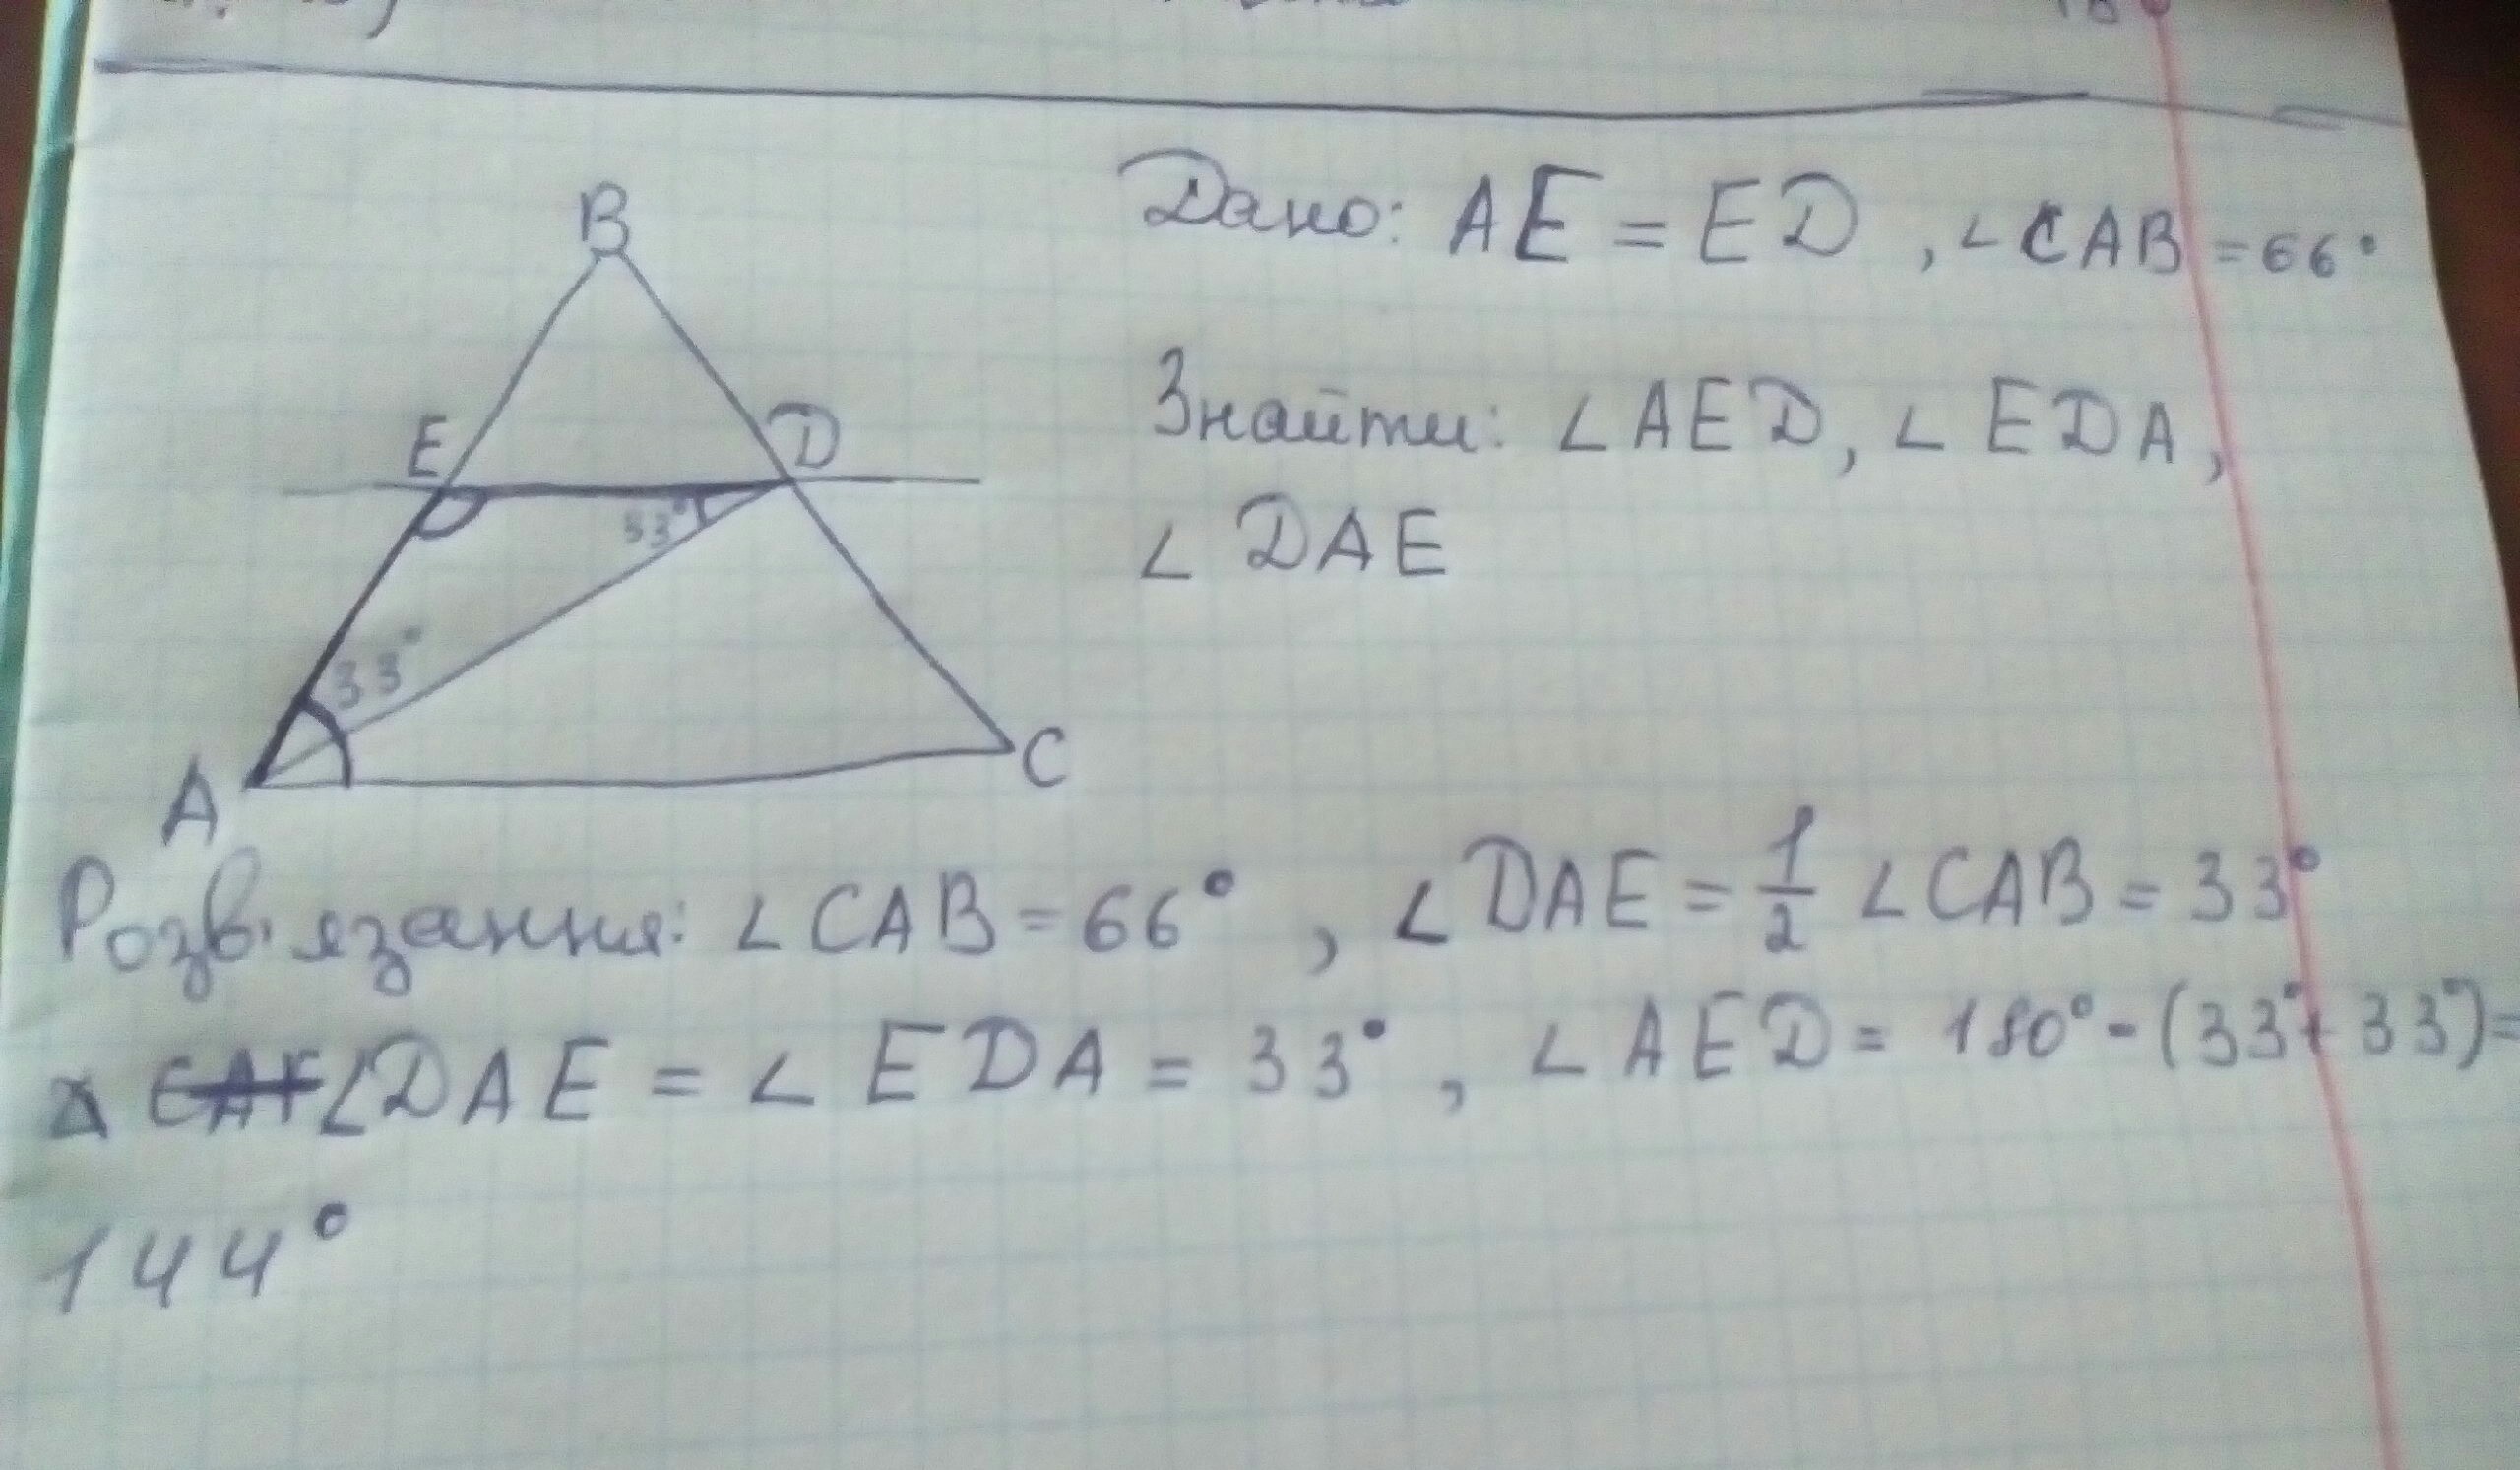 B
E
D
53°
33°
A
C
Дано: AE = ED, ∠CAB = 66°
Знайти: ∠AED, ∠EDA,
∠DAE
Розв'язання: ∠CAB = 66°, ∠DAE = 1/2 ∠CAB = 33°
∠DAE = ∠EDA = 33°, ∠AED = 180° - (33° + 33°) =
144°